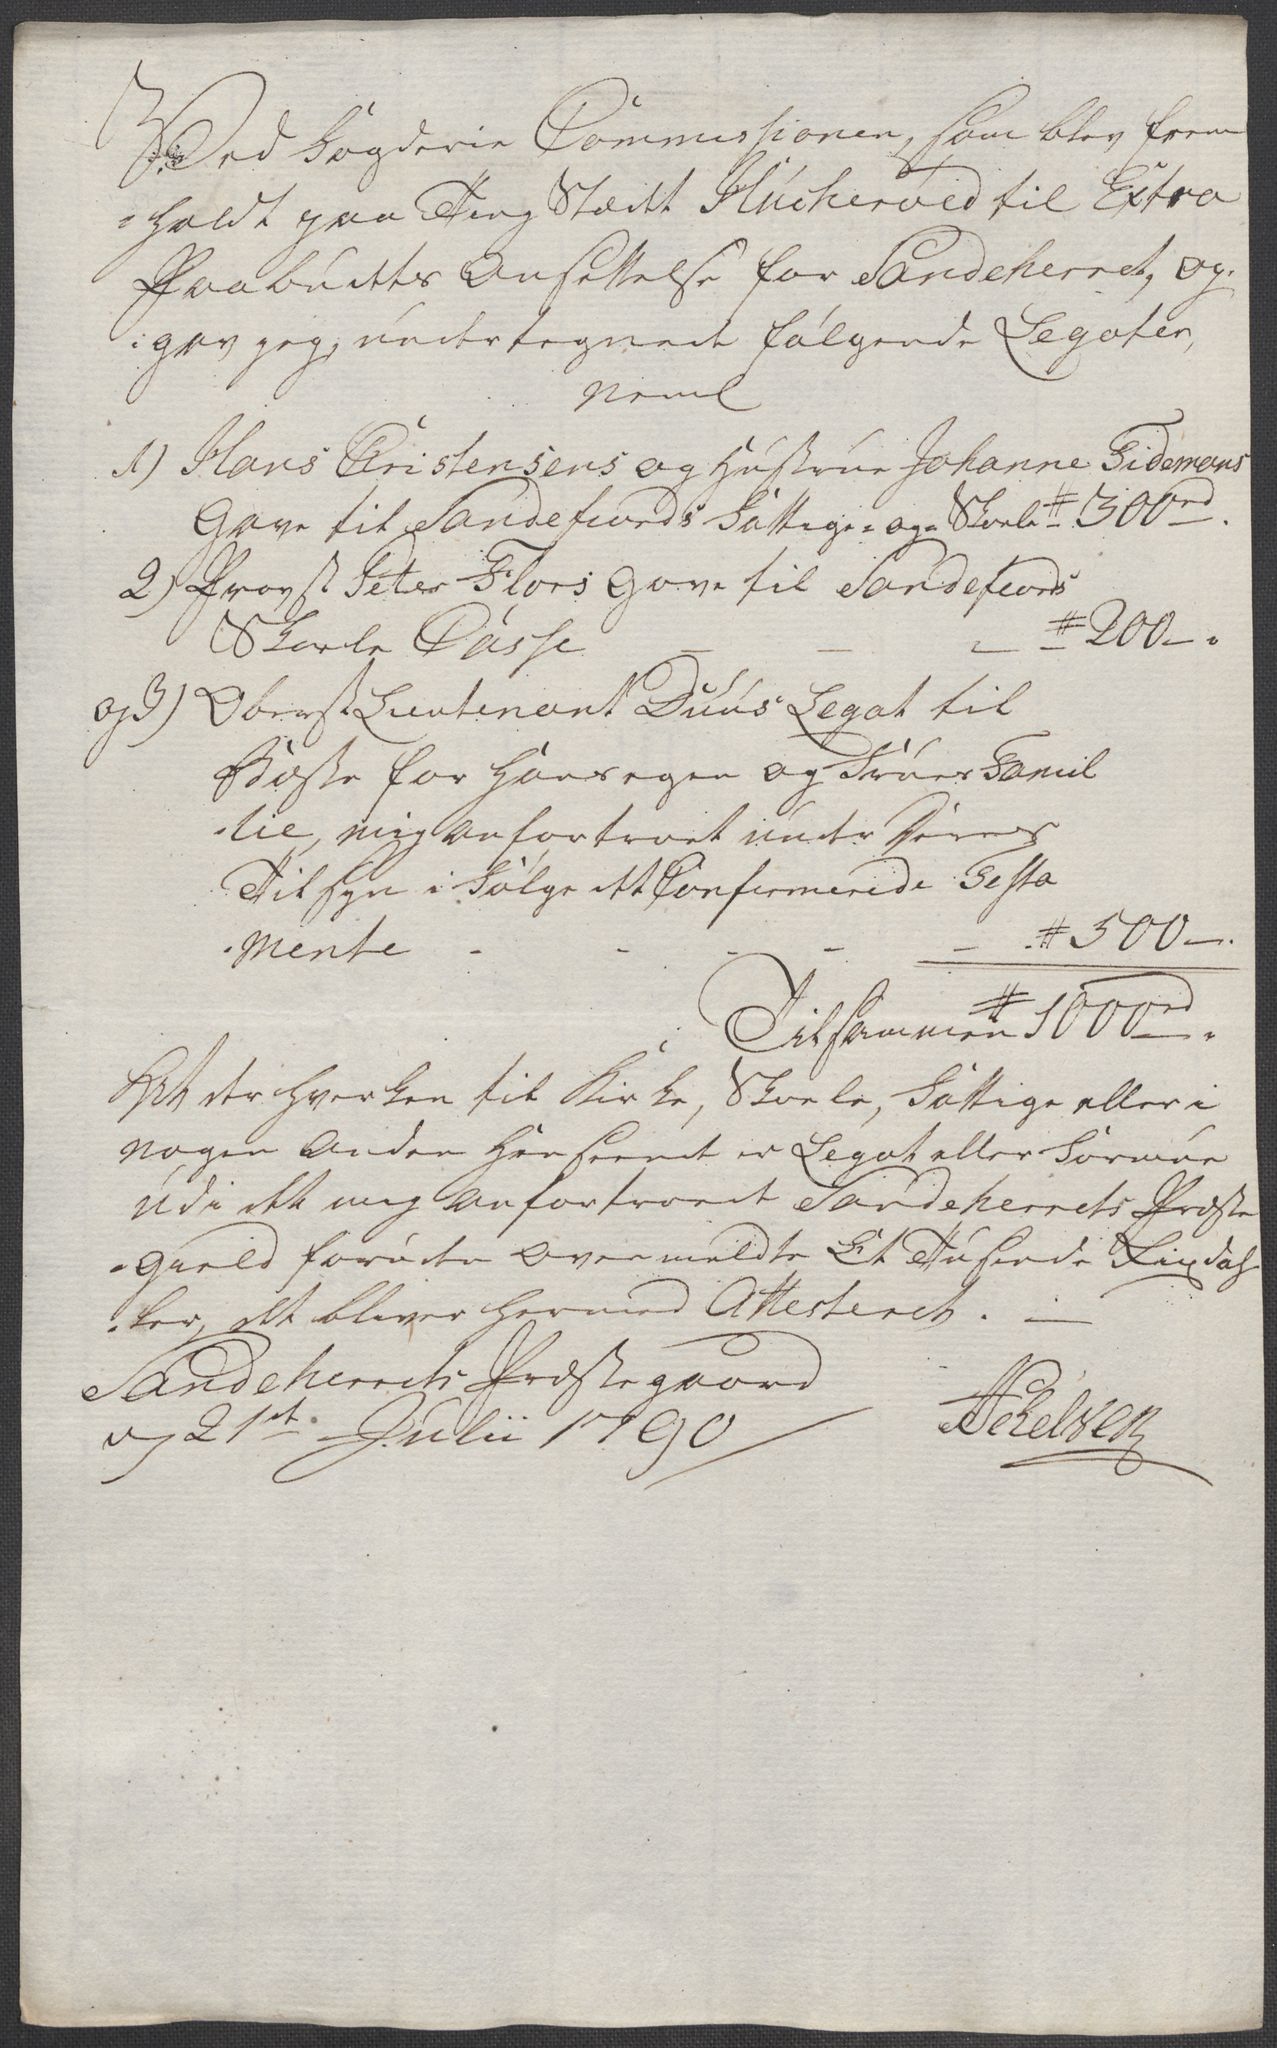 Ved Fogderie Commissionen, som blev frem
=holdt paa Ting Stædet Hucherød til Extra
Paabudets Ansettelse for Sandeherret, op=
=gav jeg, undertegnede følgende Legater,
Neml
1) Hans Christensens og Hustrue Johanne Tidemans
Gave til Sandefiords Fattige= og Skole # 300rd.
2) Provst Peter Flors Gave til Sandefiords
Skole Casse — — — # 200 —.
og 3) Oberst Lieutenant Duus Legat til
Bæste for Hans egen og Frues Famil
=lie, mig anfortroet under Deres
Tilsyn i Følge det Confirmerede Testa
=mente - - - - — # 500 —.
Tilsammen # 1000rd.
At der hverken til Kirke, Skole, Fattige eller i
nogen anden Henseende er Legat eller Formue
udi det mig anfortroede Sandeherrets Præste
=gield foruden ovenmeldte Et Tusende Rixdal
=ler, det bliver hermed Attesteret. —
Sandeherrets Præstegaard
21de Julii 1790